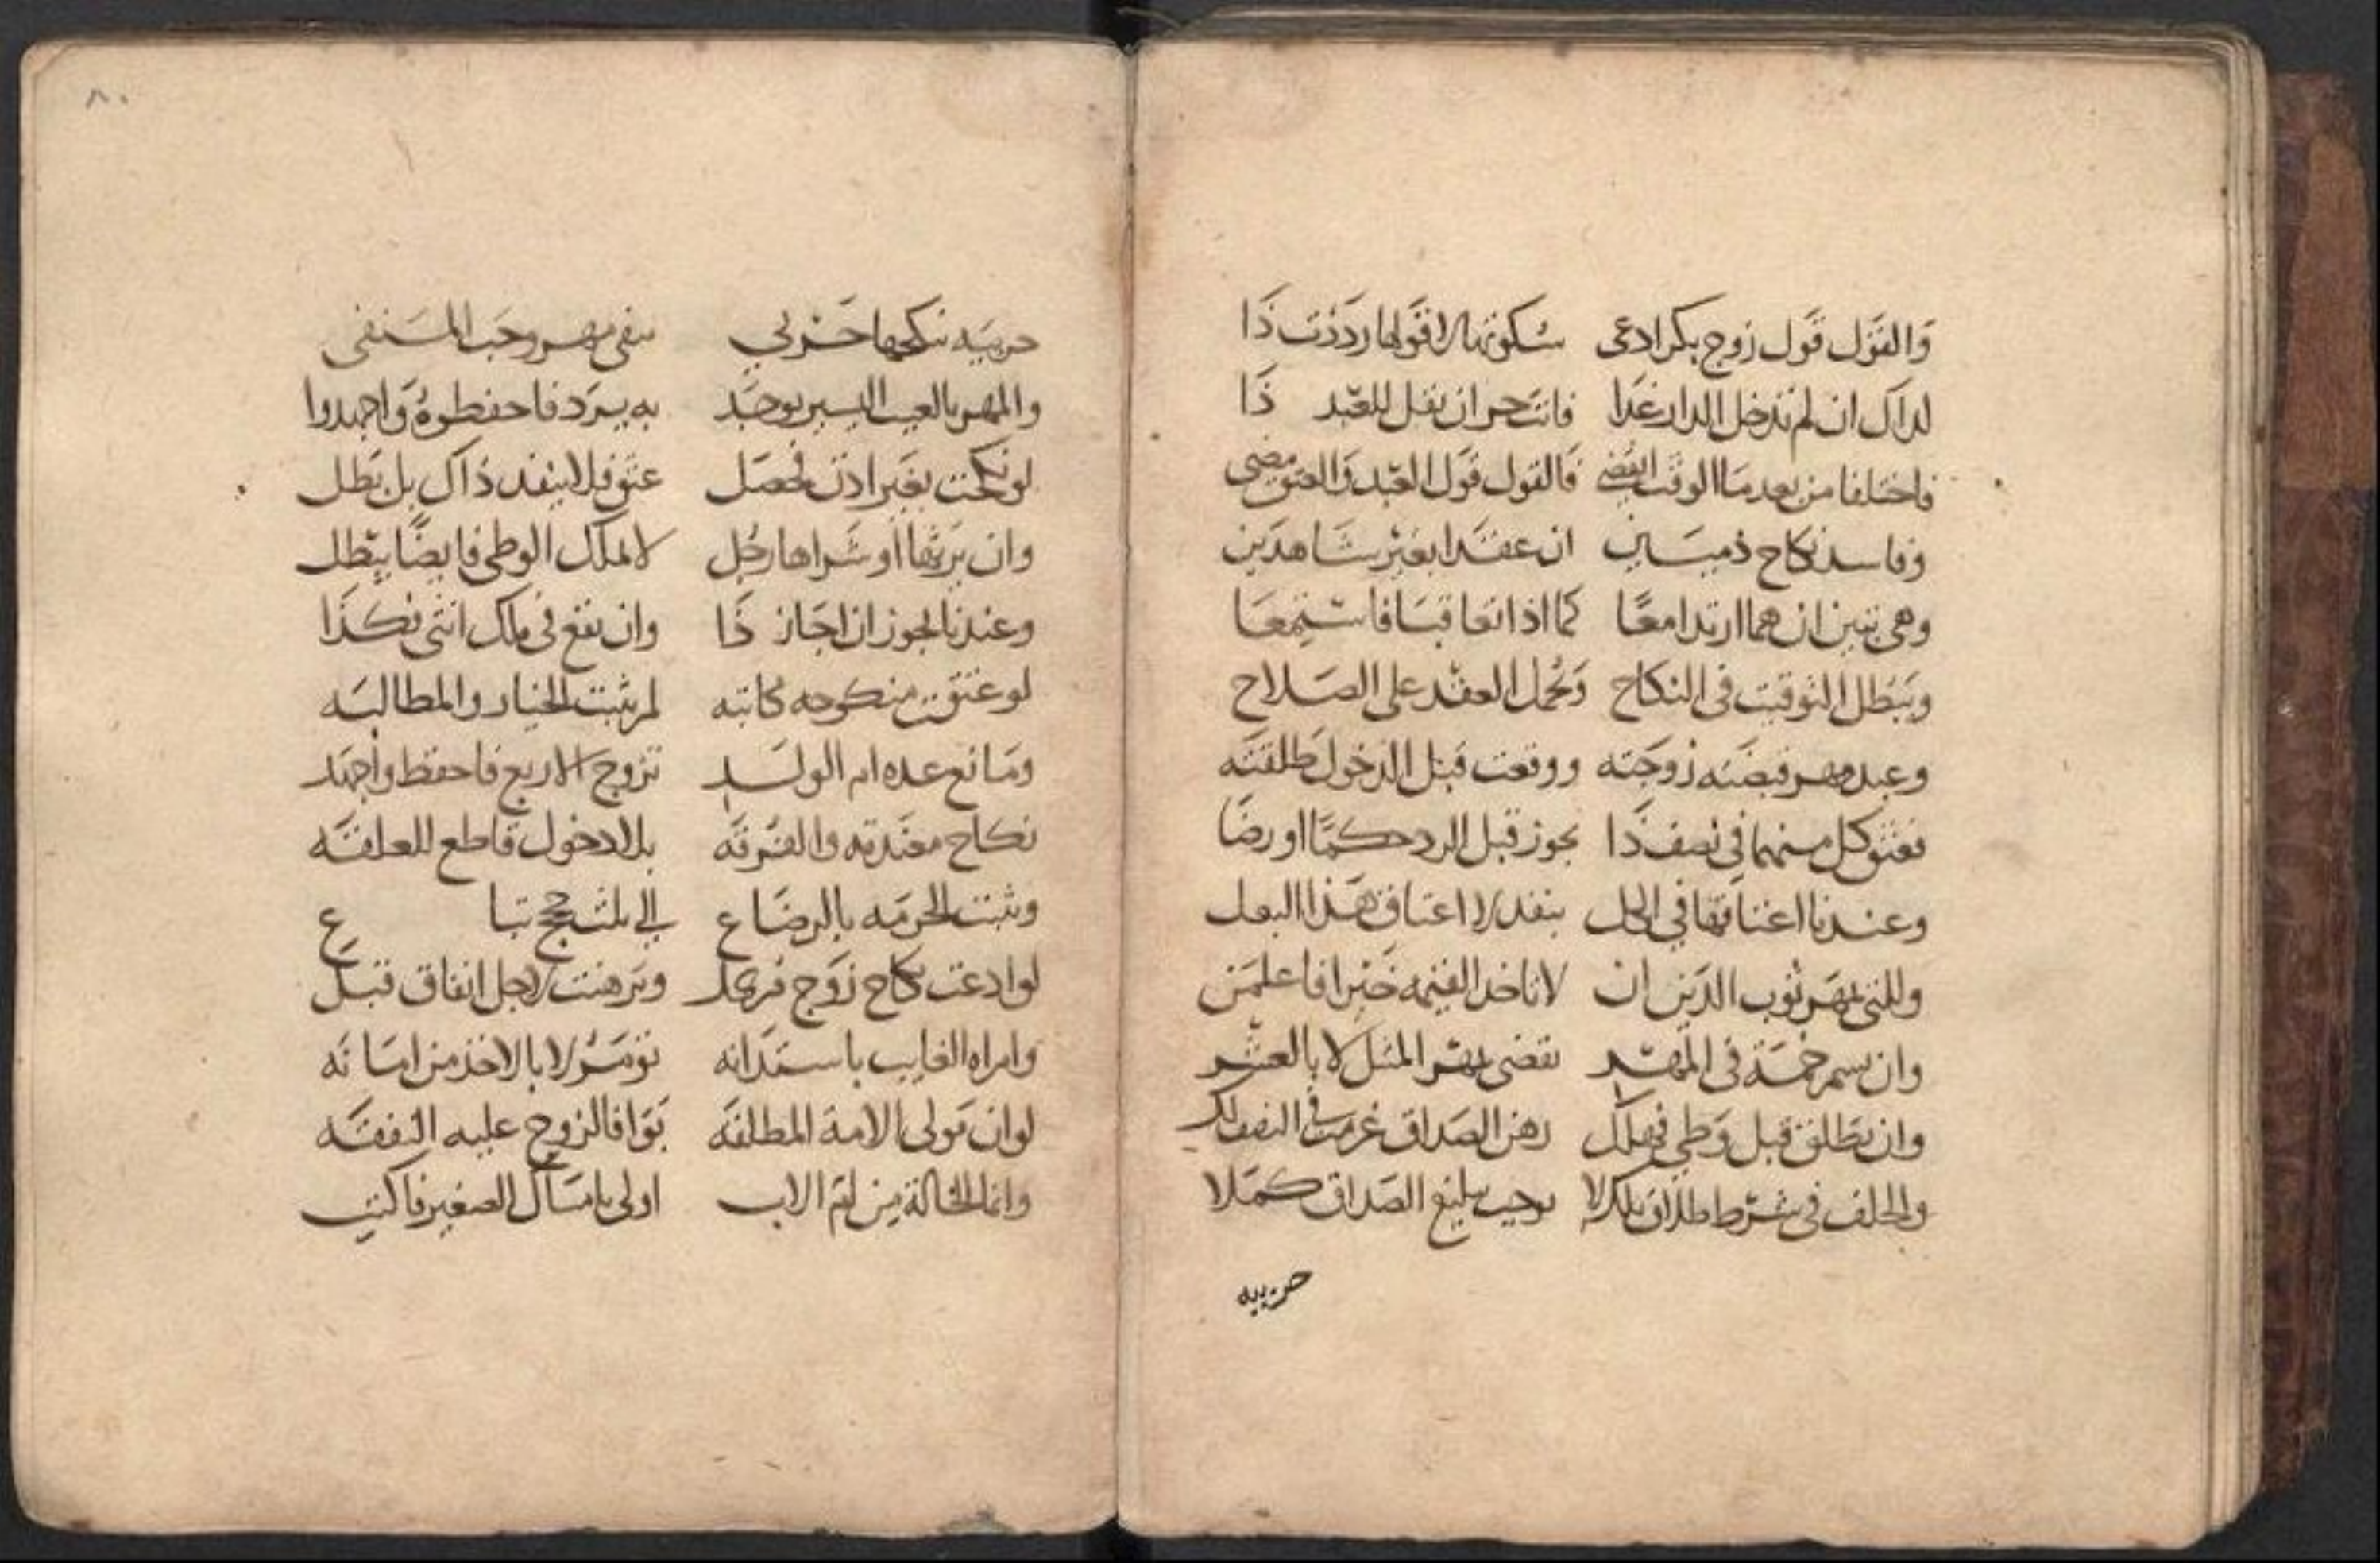 والقول قول زوج بكر ادعى سكوتها لا قولها رددت ذا
لذاك ان لم تدخل الدار غدا فانت حر ان يقل للعبد ذا
فاختلفا من بعد ما الوقت انقضى فالقول قول العبد والعتق مضى
وفاسد نكاح ذميين ان عقدا بغير شاهدين
وهي تبين ان هما ارتدا معا كما اذا تعاقبا فاستمعا
ويبطل التوقيت في النكاح ويحمل العقد على الصلاح
وعبد مهر قبضته زوجته ووقعت قبل الدخول طلقته
فعتق كل منهما في نصف ذا يجوز قبل الرد حكما او رضا
وعندنا اعتاقها في الكل ينفد لا اعتاق هذا البعل
وللتي بمهر ثوب الدين ان لا تاخذ القيمة خيرا فاعلمن
وان يسم خمة في المهر تقضي بمهر المثل لا بالعشر
وان يطلق قبل وطي فهلك رهن الصداق غرمت في النصف لك
والحلف في شرط طلاق تلك لا يوجب تبليغ الصداق كملا
حربيه
٨٠
حربيه ينكحها حربي بنفي مهر وجب المنفي
والمهر بالعيب اليسير يوجد به يرد فاحفظوه واجهدوا
لو نكحت بغير اذن فحصل عتق فلا ينفد ذاك بل بطل
وان يرثها او شراها رجل لا تملك الوطي فايضا يبطل
وعندنا يجوز ان اجاز ذا وان تقع في ملك انثى فكذا
لو عتقت منكوحه مكاتبه لم يثبت الخيار والمطالبه
ومانع عده ام الولد تزوج الاربع فاحفظ واجهد
نكاح معتدته والفرقه بلا دخول قاطع للعلقه
ويثبت الحرمه بالرضاع الى ثلث حجج تباع
لو ادعت نكاح زوج وبرهنت لاجل انفاق قبل
وامراه الغايب باستدانه تومر لا بالاخذ من امانه
لو ان مولى الامة المطلقه بوا فالزوج عليه النفقه
وانما الخالة من ام الاب اولى بامساك الصغير فاكتب